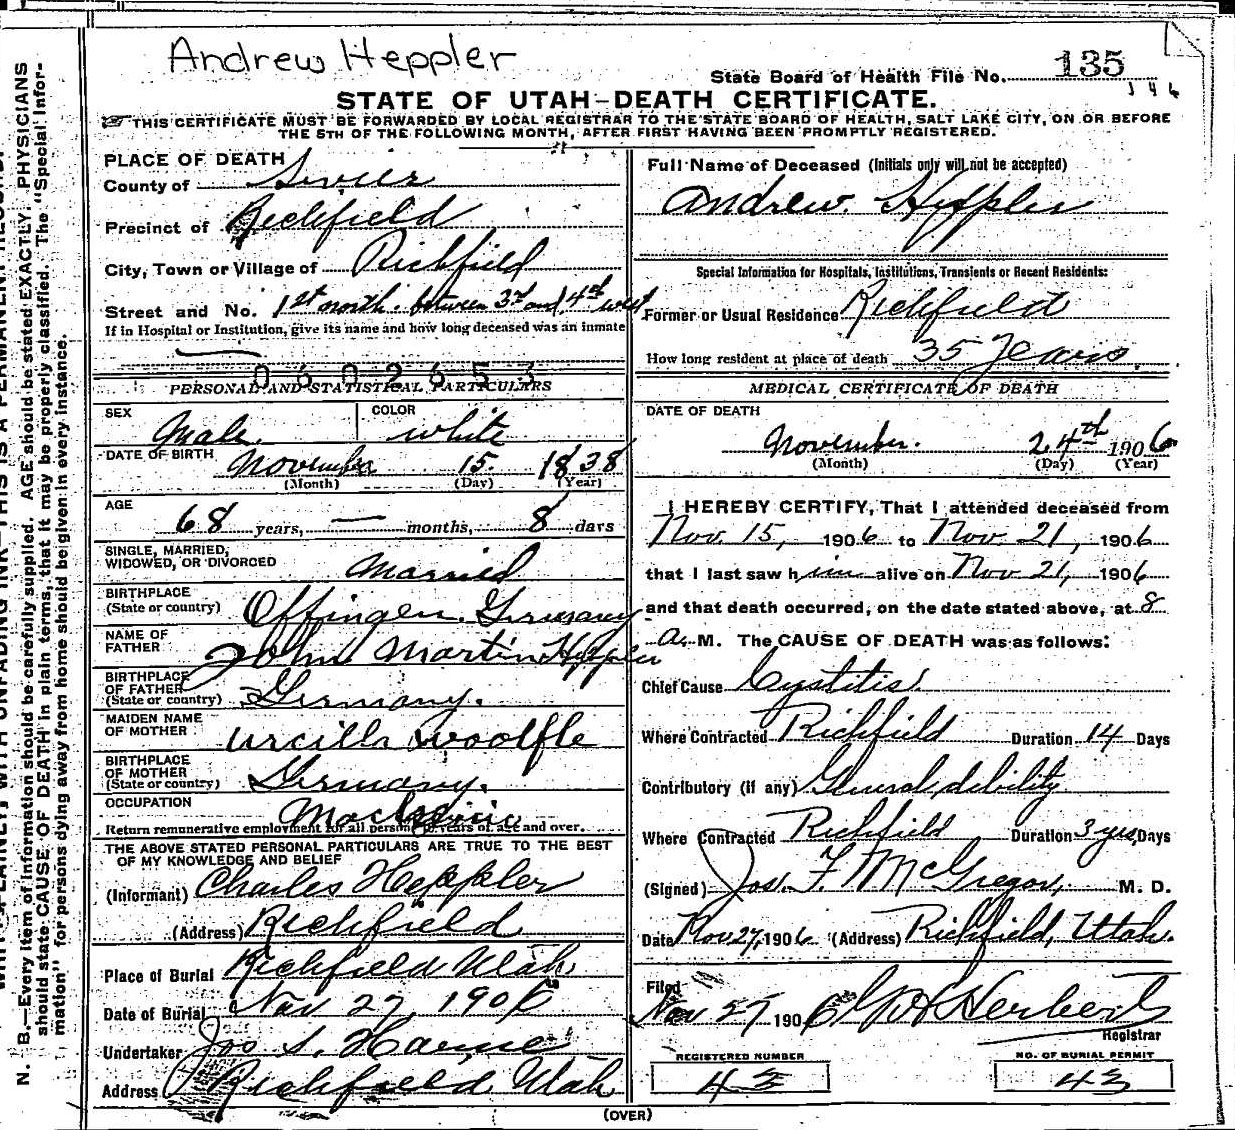 Andrew Heppler
State Board of Health File No. 135
146
STATE OF UTAH–DEATH CERTIFICATE.
THIS CERTIFICATE MUST BE FORWARDED BY LOCAL REGISTRAR TO THE STATE BOARD OF HEALTH, SALT LAKE CITY, ON OR BEFORE
THE 5TH OF THE FOLLOWING MONTH, AFTER FIRST HAVING BEEN PROMPTLY REGISTERED.
PLACE OF DEATH
County of Sevier
Precinct of Richfield
City, Town or Village of Richfield
Street and No. 1st north. between 3d and 4th west
If in Hospital or Institution, give its name and how long deceased was an inmate
0602653
PERSONAL AND STATISTICAL PARTICULARS
SEX Male
COLOR white
DATE OF BIRTH November 15. 1838
(Month) (Day) (Year)
AGE
68 years, — months, 8 days
SINGLE, MARRIED,
WIDOWED, OR DIVORCED Married
BIRTHPLACE
(State or country) Offingen. Germany
NAME OF
FATHER John Martin Heppler
BIRTHPLACE
OF FATHER
(State or country) Germany.
MAIDEN NAME
OF MOTHER Urcilla Woolfle
BIRTHPLACE
OF MOTHER
(State or country) Germany.
OCCUPATION
Return remunerative employment for all persons years of age and over.
THE ABOVE STATED PERSONAL PARTICULARS ARE TRUE TO THE BEST
OF MY KNOWLEDGE AND BELIEF
(Informant) Charles Heppler
(Address) Richfield
Place of Burial Richfield Utah
Date of Burial Nov 27, 1906
Undertaker Jos S. Horne
Address Richfield Utah
Full Name of Deceased (Initials only will not be accepted)
Andrew. Heppler
Special Information for Hospitals, Institutions, Transients or Recent Residents:
Former or Usual Residence Richfield
How long resident at place of death 35 Years
MEDICAL CERTIFICATE OF DEATH
DATE OF DEATH
November. 24th 1906
(Month) (Day) (Year)
I HEREBY CERTIFY, That I attended deceased from
Nov. 15, 1906 to Nov. 21, 1906
that I last saw him alive on Nov 21, 1906
and that death occurred, on the date stated above, at 8
a. M. The CAUSE OF DEATH was as follows:
Chief Cause Cystitis.
Where Contracted Richfield Duration 14 Days
Contributory (if any) General debility
Where Contracted Richfield Duration 3 yrs, Days
(Signed) Jos. F. McGregor, M. D.
Date Nov 27, 1906 (Address) Richfield, Utah.
Filed
Nov 27 1906 Herbert
Registrar
REGISTERED NUMBER
43
NO. OF BURIAL PERMIT
43
(OVER)
N. B.—Every item of information should be carefully supplied. AGE should be stated EXACTLY. PHYSICIANS
should state CAUSE OF DEATH in plain terms, that it may be properly classified. The "Special Infor-
mation" for persons dying away from home should be given in every instance.